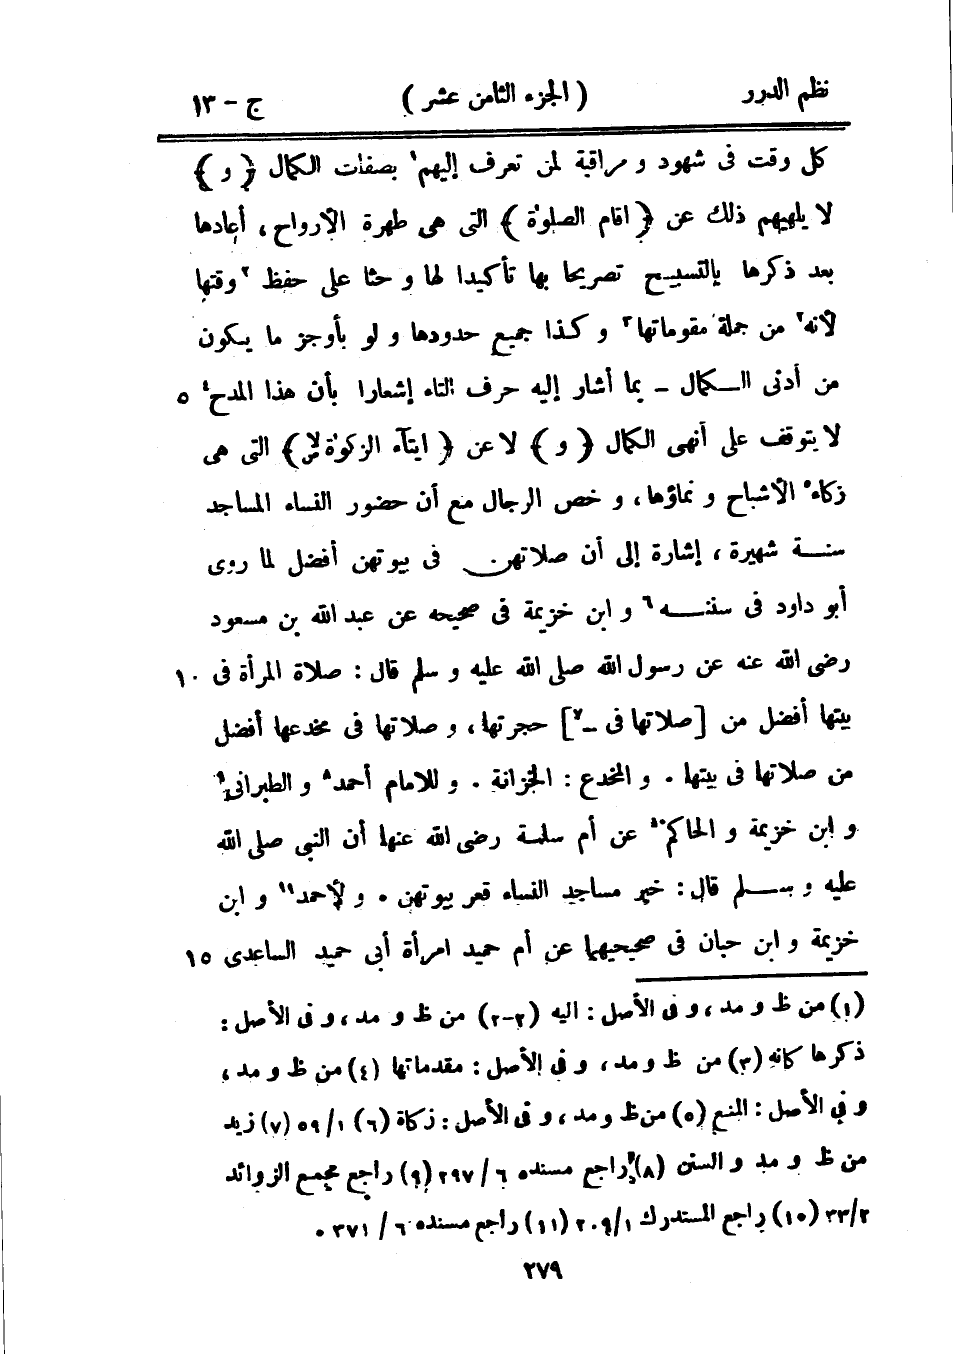 نظم الدرر ( الجزء الثامن عشر ) ج - ١٣
كل وقت فى شهود و مراقبة لمن تعرف إليهم١ بصفات الكمال ﴿ و ﴾
لا يلهيهم ذلك عن ﴿ اقام الصلوٰة ﴾ التى هى طهرة الأرواح ، أعادها
بعد ذكرها بالتسبيح تصريحا بها تأكيدا لها و حثا على حفظ ٢وقتها
لأنه٢ من جملة مقوماتها٣ و كذا جميع حدودها و لو بأوجز ما يكون
من أدنى الكمال - بما أشار إليه حرف التاء إشعارا بأن هذا المدح٤ ٥
لا يتوقف على أنهى الكمال ﴿ و ﴾ لا عن ﴿ ايتآء الزكوٰة ۙ ﴾ التى هى
زكاء٥ الأشباح و نماؤها ، و خص الرجال مع أن حضور النساء المساجد
سنة شهيرة ، إشارة إلى أن صلاتهن فى بيوتهن أفضل لما روى
أبو داود فى سننه٦ و ابن خزيمة فى صحيحه عن عبد الله بن مسعود
رضى الله عنه عن رسول الله صلى الله عليه و سلم قال : صلاة المرأة فى ١٠
بيتها أفضل من [ صلاتها فى -٧ ] حجرتها ، و صلاتها فى مخدعها أفضل
من صلاتها فى بيتها . و المخدع : الخزانة . و للامام أحمد٨ و الطبرانى٩
و ابن خزيمة و الحاكم١٠ عن أم سلمة رضى الله عنها أن النبى صلى الله
عليه و سلم قال : خير مساجد النساء قعر بيوتهن . و لأحمد١١ و ابن
خزيمة و ابن حبان فى صحيحيهما عن أم حميد امرأة أبى حميد الساعدى ١٥
(١) من ظ و مد ، و فى الأصل : اليه (٢-٢) من ظ و مد ، و فى الأصل :
ذكرها كانه (٣) من ظ و مد ، و فى الأصل : مقدماتها (٤) من ظ و مد ،
و فى الأصل : المنع (٥) من ظ و مد ، و فى الأصل : زكاة (٦) ١/ ٥٩ (٧) زيد
من ظ و مد و السنن (٨) راجع مسنده ٦ / ٢٩٧ (٩) راجع مجمع الزوائد
٢/ ٣٣ (١٠) راجع المستدرك ١/ ٢٠٩ (١١) راجع مسنده ٦ / ٣٧١ .
٢٧٩